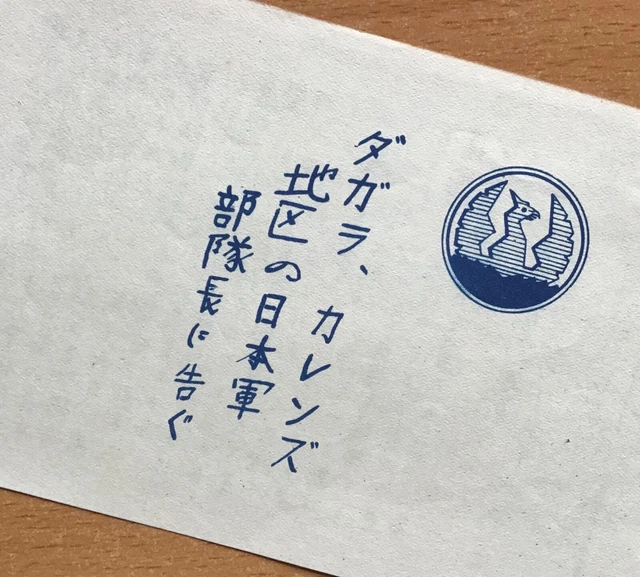 ダガラ、カレンズ
地区の日本軍
部隊長に告ぐ